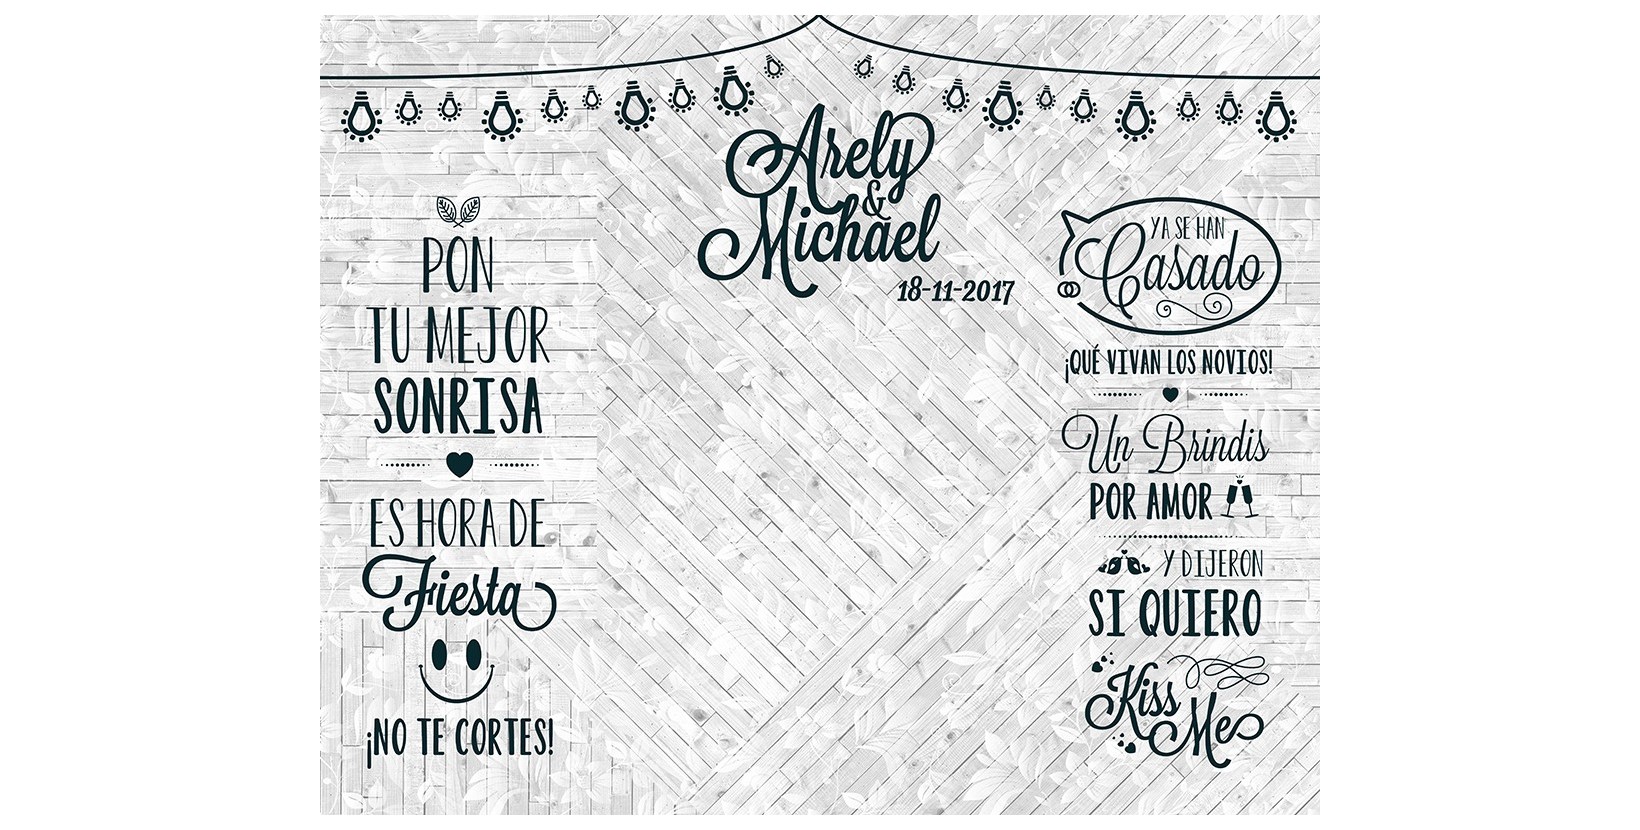 Arely
&
Michael
18-11-2017
PON
TU MEJOR
SONRISA
ES HORA DE
Fiesta
¡NO TE CORTES!
YA SE HAN
Casado
¡QUÉ VIVAN LOS NOVIOS!
Un Brindis
POR AMOR
Y DIJERON
SI QUIERO
Kiss
Me